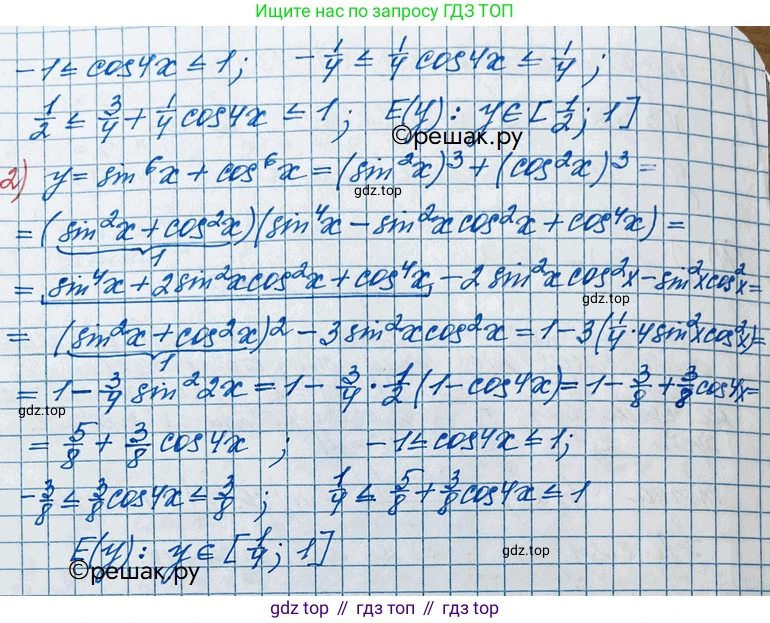 Ищите нас по запросу ГДЗ.ТОП
-1≤cos4x≤1; -1/4 ≤ 1/4 cos4x ≤ 1/4;
1/2 ≤ 3/4 + 1/4 cos4x ≤ 1; E(y): y∈[1/2; 1]
©решак.ру
2) y = sin⁶x + cos⁶x = (sin²x)³ + (cos²x)³ =
gdz.top
= (sin²x + cos²x)(sin⁴x - sin²x cos²x + cos⁴x) =
1
= sin⁴x + 2sin²x cos²x + cos⁴x - 2 sin²x cos²x - sin²x cos²x =
gdz.top
= (sin²x + cos²x)² - 3 sin²x cos²x = 1 - 3(1/4 · 4 sin²x cos²x) =
1
= 1 - 3/4 sin²2x = 1 - 3/4 · 1/2 (1 - cos4x) = 1 - 3/8 + 3/8 cos4x =
gdz.top
= 5/8 + 3/8 cos4x ; -1≤cos4x≤1;
-3/8 ≤ 3/8 cos4x ≤ 3/8 ; 1/4 ≤ 5/8 + 3/8 cos4x ≤ 1
E(y): y∈[1/4; 1]
gdz.top
©решак.ру
gdz top // гдз топ // gdz top